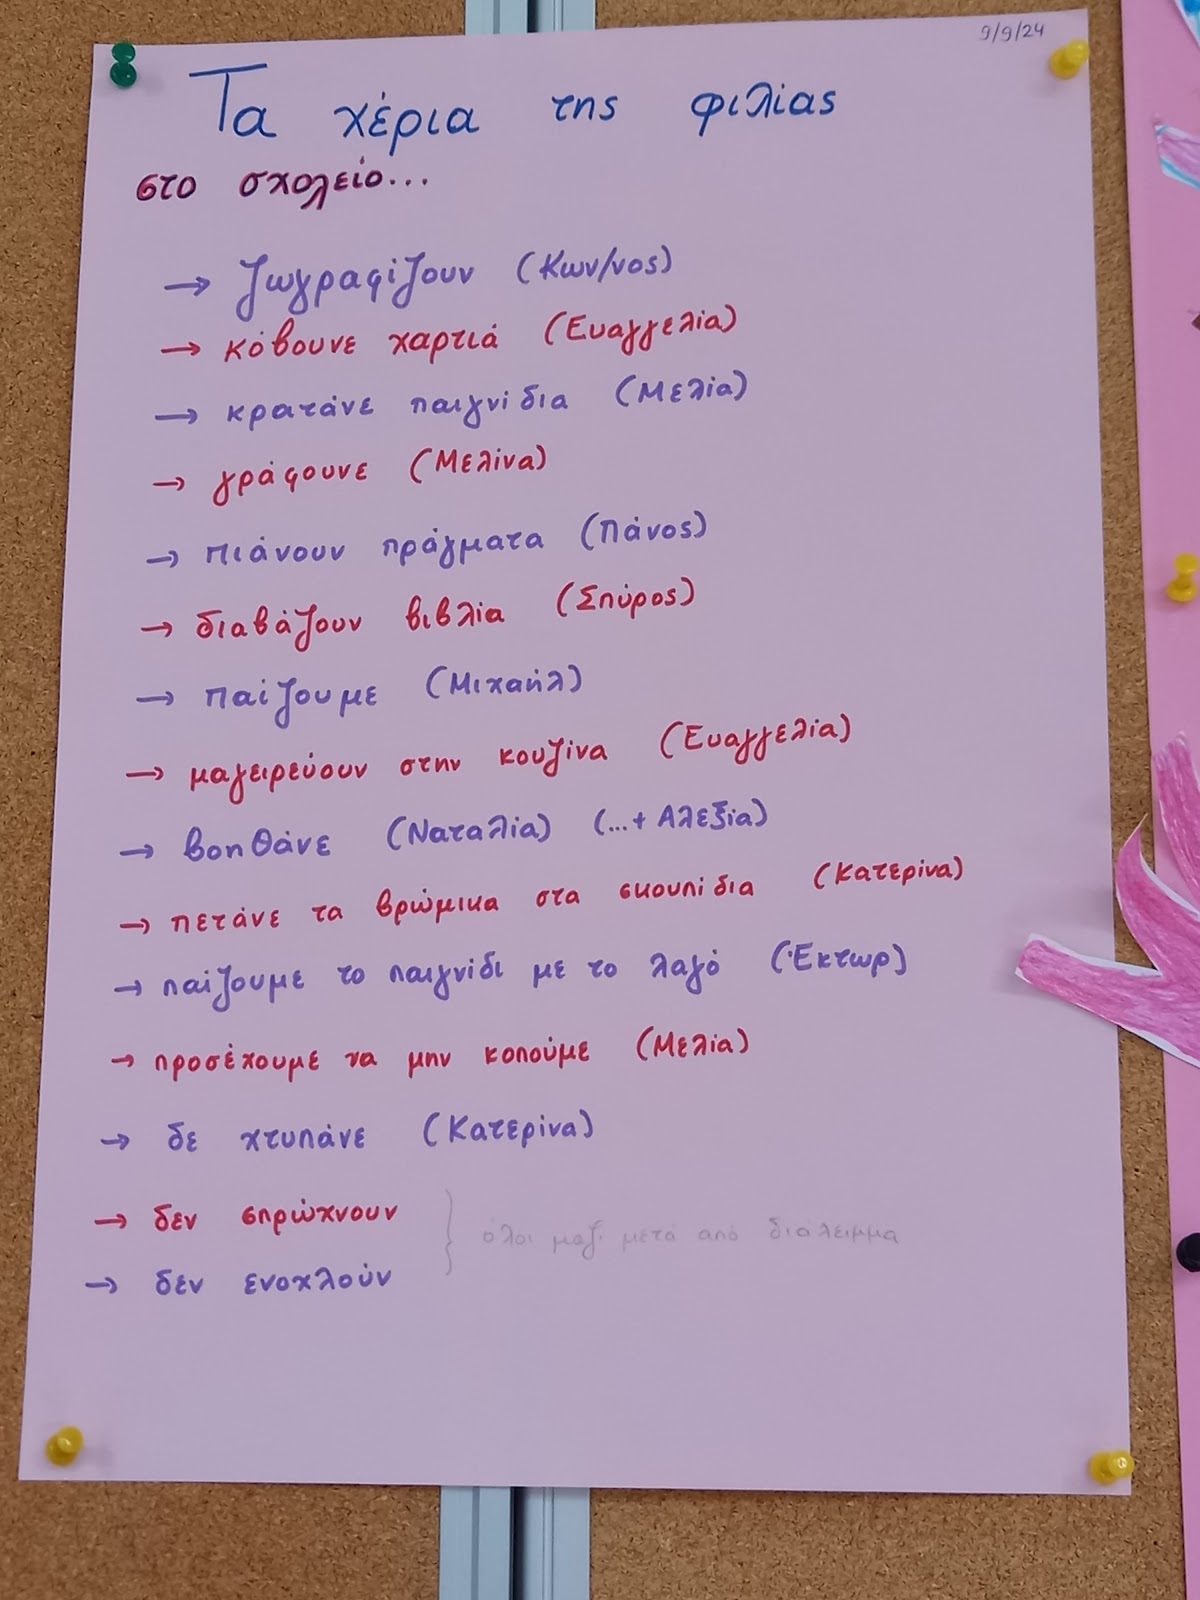 9/9/24
Τα χέρια της φιλίας
στο σχολείο...
→ ζωγραφίζουν (Κων/νος)
→ κόβουνε χαρτιά (Ευαγγελία)
→ κρατάνε παιγνίδια (Μελία)
→ γράφουνε (Μελίνα)
→ πιάνουν πράγματα (Πάνος)
→ διαβάζουν βιβλία (Σπύρος)
→ παίζουμε (Μιχαήλ)
→ μαγειρεύουν στην κουζίνα (Ευαγγελία)
→ βοηθάνε (Ναταλία) (...+ Αλεξία)
→ πετάνε τα βρώμικα στα σκουπίδια (Κατερίνα)
→ παίζουμε το παιγνίδι με το λαγό (Έκτωρ)
→ προσέχουμε να μην κοπούμε (Μελία)
→ δε χτυπάνε (Κατερίνα)
→ δεν σπρώχνουν
όλοι μαζί μετά από διάλειμμα
→ δεν ενοχλούν